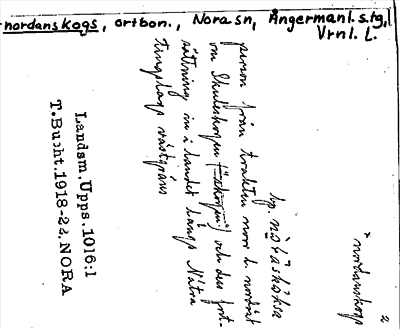 nordanskogs, ortbon., Nora sn, Ångermanl. s.tg,
Vrnl. L.
2
nordanskogs
person från trakten norr l. nordväst
om Skuleskogen ("skogen") och dess fort-
sättning in i landet längs Nätra
tingslags västgräns
Landsm. Upps. 1016:1
T. Bucht. 1918-22. NORA